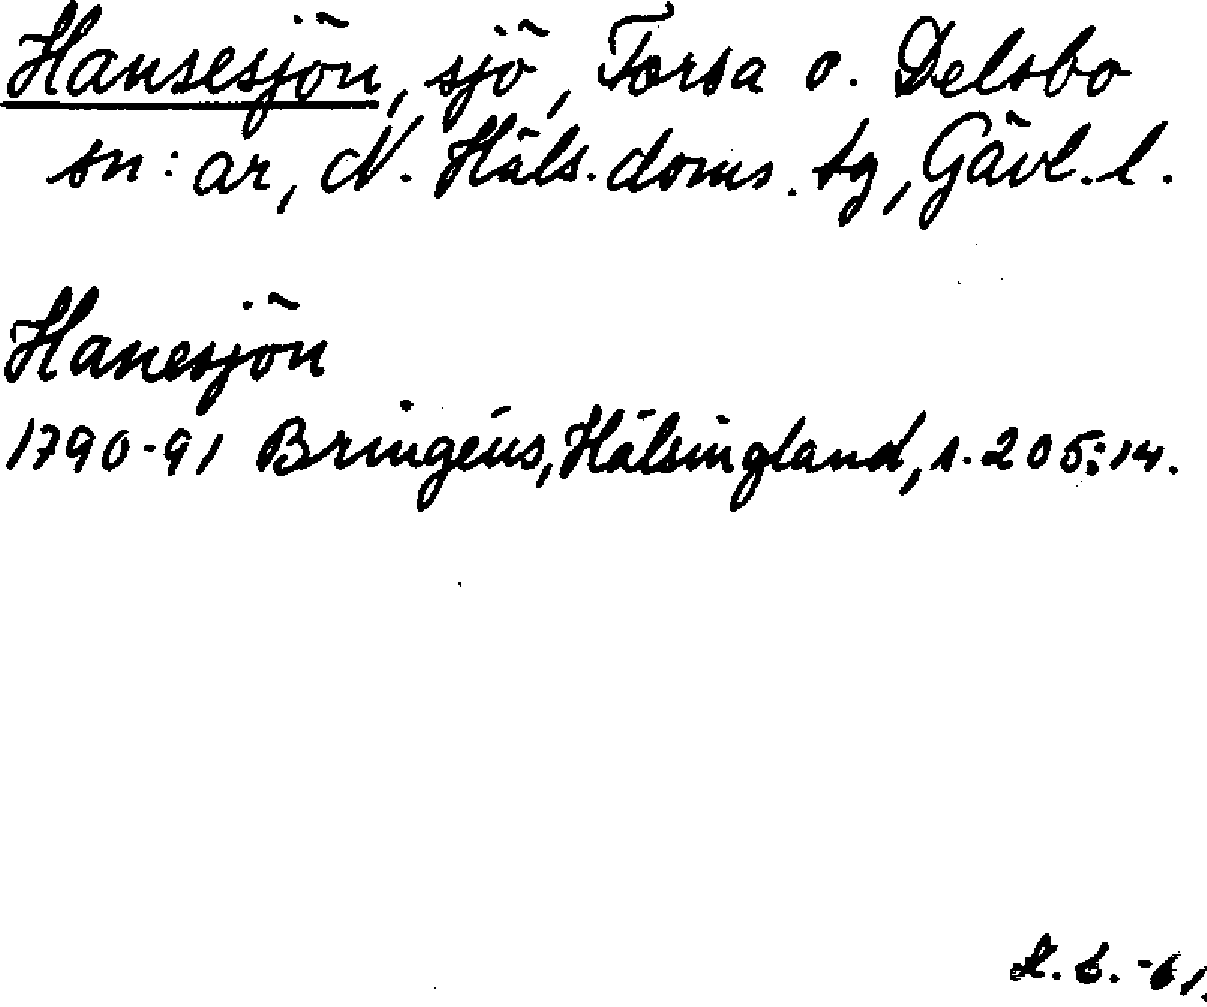 Hansesjön, sjö, Forsa o. Delsbo
sn:ar, N. Häls. doms. tg, Gävl. l.
Hanesjön
1790-91 Bringéus, Hälsingland, s. 205:14.
-61.